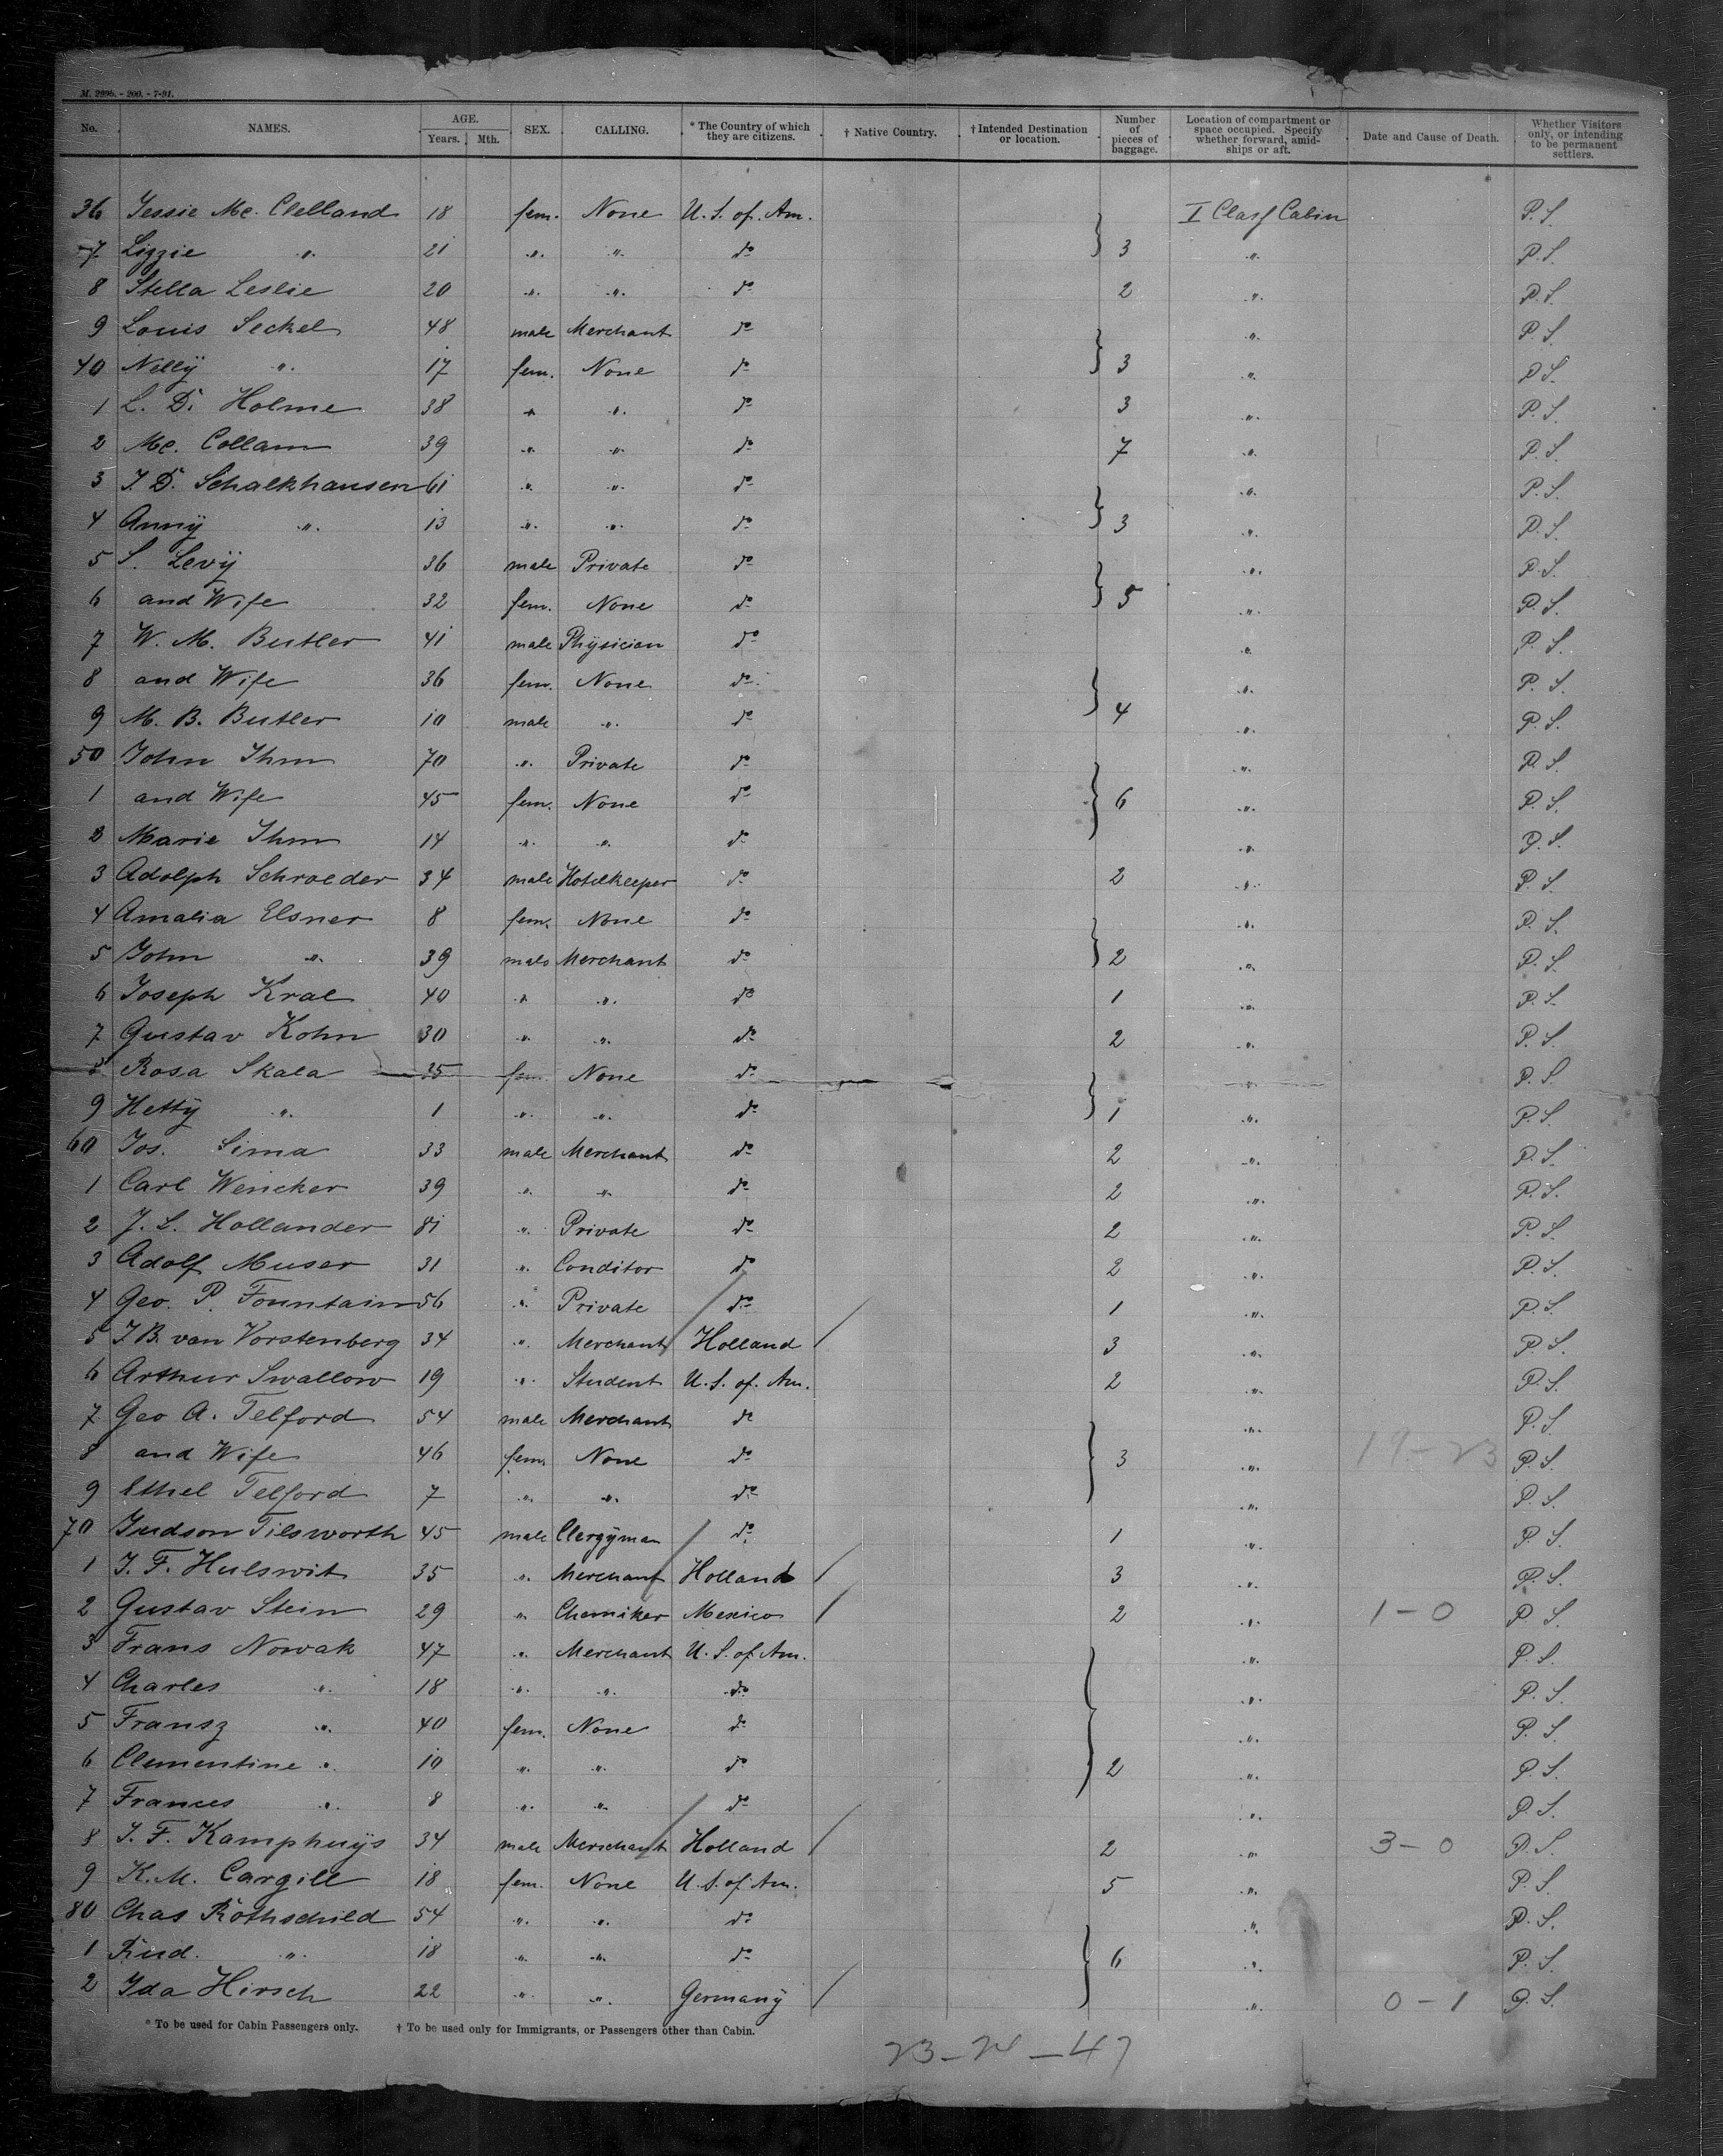 M. 299b. - 200. - 7-91.
No. NAMES. AGE. Years. Mth. SEX. CALLING. * The Country of which they are citizens. † Native Country. † Intended Destination or location. Number of pieces of baggage. Location of compartment or space occupied. Specify whether forward, amidships or aft. Date and Cause of Death. Whether Visitors only, or intending to be permanent settlers.
36 Jessie Mc. Clelland 18 fem. None U. S. of. Am. I Class Cabin P. S.
7 Lizzie " 21 " " do 3 " P. S.
8 Stella Leslie 20 " " do 2 " P. S.
9 Louis Seckel 48 male Merchant do " P. S.
40 Nellÿ " 17 fem. None do 3 " P. S.
1 L. D. Holme 38 " " do 3 " P. S.
2 Mc. Collam 39 " " do 7 " P. S.
3 J. D. Schalkhausen 61 " " do " P. S.
4 Annÿ " 13 " " do 3 " P. S.
5 S. Levÿ 36 male Private do " P. S.
6 and Wife 32 fem. None do 5 " P. S.
7 W. M. Butler 41 male Phÿsician do " P. S.
8 and Wife 36 fem. None do " P. S.
9 M. B. Butler 10 male " do 4 " P. S.
50 John Ihm 70 " Private do " P. S.
1 and Wife 45 fem. None do 6 " P. S.
2 Marie Ihm 14 " " do " P. S.
3 Adolph Schroeder 34 male Hotelkeeper do 2 " P. S.
4 Amalia Elsner 8 fem. None do " P. S.
5 John " 39 male Merchant do 2 " P. S.
6 Joseph Kral 40 " " do 1 " P. S.
7 Gustav Kohn 30 " " do 2 " P. S.
8 Rosa Skala 25 fem. None do " P. S.
9 Hettÿ " 1 " " do 1 " P. S.
60 Jos. Sima 33 male Merchant do 2 " P. S.
1 Carl Wencker 39 " " do 2 " P. S.
2 J. L. Hollander 81 " Private do 2 " P. S.
3 Adolf Muser 31 " Conditor do 2 " P. S.
4 Geo. P. Fountain 56 " Private do 1 " P. S.
5 J. B. van Vorstenberg 34 " Merchant Holland 3 " P. S.
6 Arthur Swallow 19 " Student U. S. of. Am. 2 " P. S.
7 Geo A. Telford 54 male Merchant do " P. S.
8 and Wife 46 fem. None do 3 " 19 - 23 P. S.
9 Ethel Telford 7 " " do " P. S.
70 Judson Tilsworth 45 male Clergÿman do 1 " P. S.
1 J. F. Hulswit 35 " Merchant Holland 3 " P. S.
2 Gustav Stein 29 " Chemiker Mexico 2 " 1 - 0 P. S.
3 Frans Nowak 47 " Merchant U. S. of Am. " P. S.
4 Charles " 18 " " do " P. S.
5 Fransz " 40 fem. None do " P. S.
6 Clementine " 10 " " do 2 " P. S.
7 Frances " 8 " " do " P. S.
8 J. F. Kamphuÿs 34 male Merschant Holland 2 " 3 - 0 P. S.
9 K. M. Cargill 18 fem. None U. S. of Am. 5 " P. S.
80 Chas Rothschild 54 " " do " P. S.
1 Rud. " 18 " " do 6 " P. S.
2 Ida Hirsch 22 " " Germanÿ " 0 - 1 P. S.
* To be used for Cabin Passengers only. † To be used only for Immigrants, or Passengers other than Cabin.
23 - 24 - 47